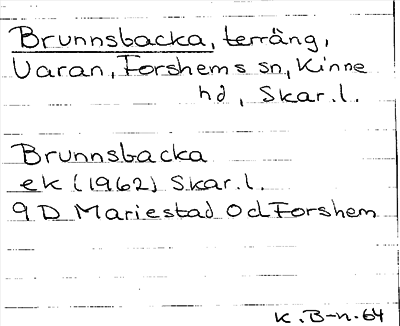 Brunnsbacka, terräng,
Varan, Forshems sn, Kinne
hd, Skar.l.
Brunnsbacka
ek (1962) Skar.l.
9D Mariestad 0d Forshem
K. B-n. 64